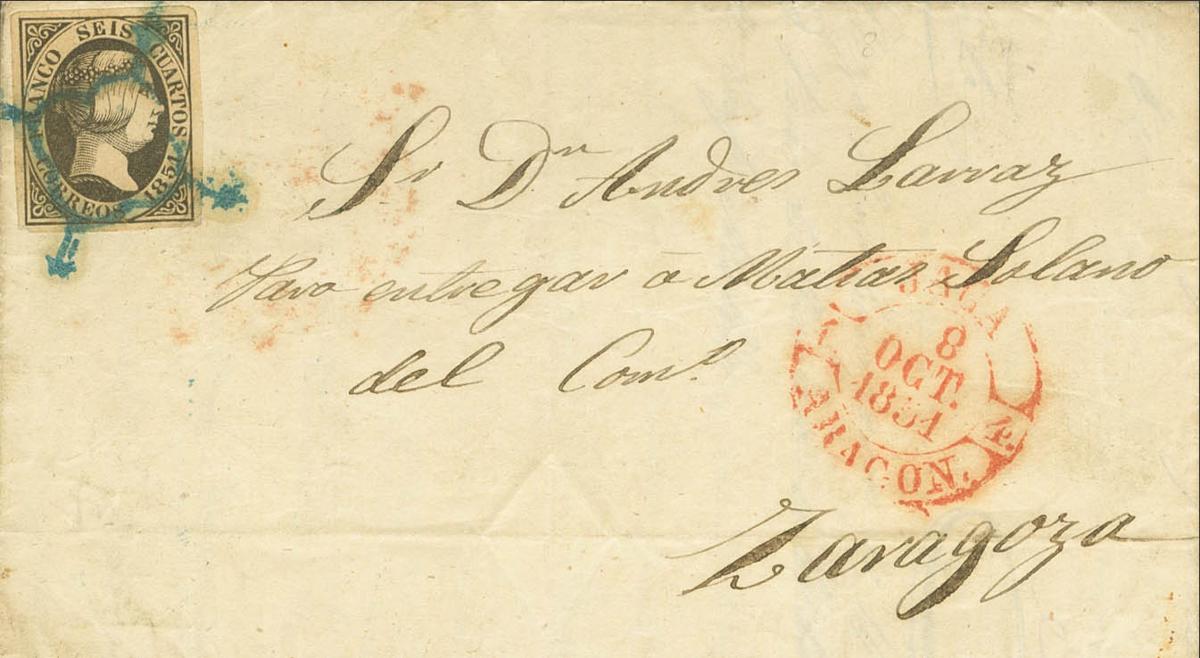 FRANCO SEIS CUARTOS
CORREOS 1851
Sr Dn Andres Larraz
Para entregar á Matias Solano
del Como.
JACA
8
OCT.
1851
ARAGON.
Zaragoza